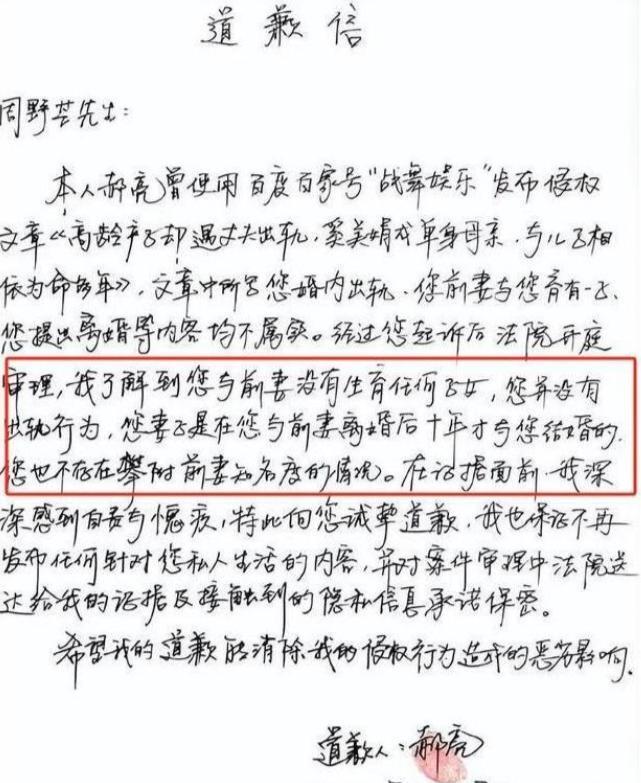 道歉信
周野芒先生：
本人郝亮曾使用百度百家号“战舞娱乐”发布侵权
文章《高龄产子却遇丈夫出轨，奚美娟成单身母亲，与儿子相
依为命多年》，文章中所写您婚内出轨、您前妻与您育有一子、
您提出离婚等内容均不属实。经过您起诉后法院开庭
审理，我了解到您与前妻没有生育任何子女，您并没有
出轨行为，您妻子是在您与前妻离婚后十年才与您结婚的，
您也不存在攀附前妻知名度的情况。在证据面前，我深
深感到自责与愧疚，特此向您诚挚道歉，我也保证不再
发布任何针对您私人生活的内容，并对案件审理中法院送
达给我的证据及接触到的隐私信息承诺保密。
希望我的道歉能消除我的侵权行为造成的恶劣影响。
道歉人：郝亮